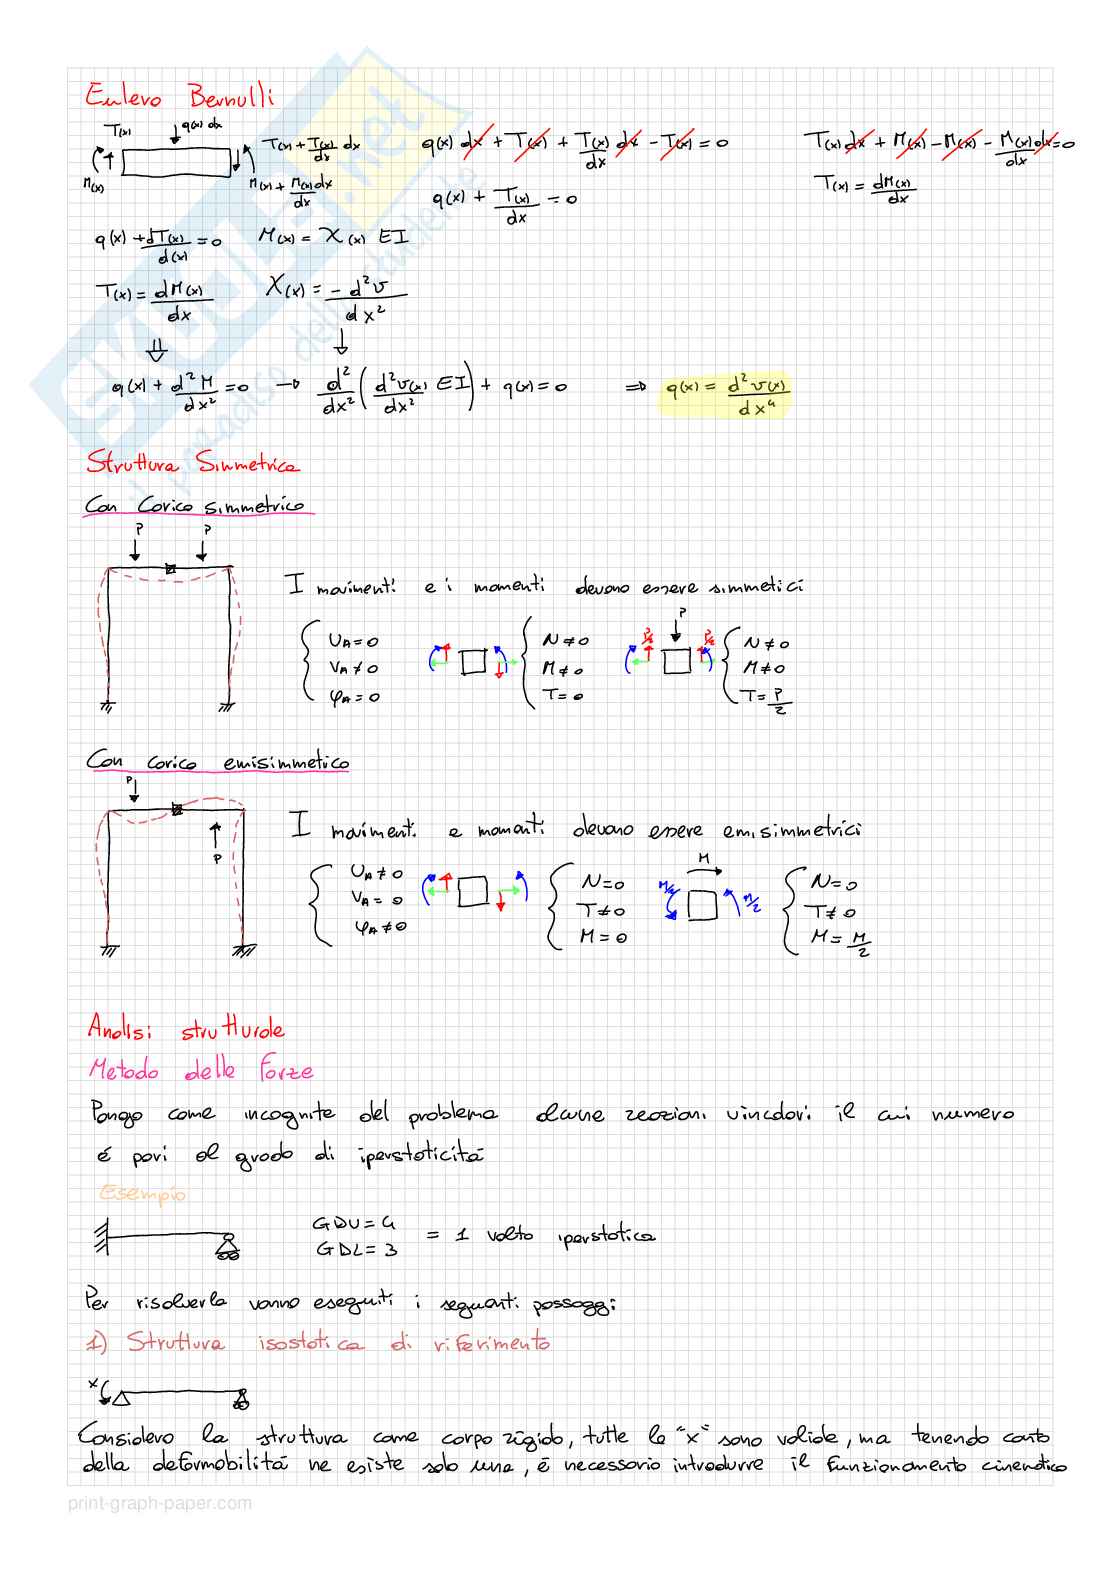 Eulero Bernulli
T(x) q(x) dx T(x) + T(x)/dx dx
M(x) M(x) + M(x)dx/dx
q(x) dx + T(x) + T(x)/dx dx - T(x) = 0
T(x) dx + M(x) - M(x) - M(x)dx/dx = 0
q(x) + T(x)/dx = 0
T(x) = dM(x)/dx
q(x) + dT(x)/d(x) = 0 M(x) = χ(x) EI
T(x) = dM(x)/dx χ(x) = - d²v/dx²
⇓ ↓
q(x) + d²M/dx² = 0 → d²/dx² (d²v(x)/dx² EI) + q(x) = 0 ⇒ q(x) = d²v(x)/dx⁴
Struttura Simmetrica
Con Carico simmetrico
P P
I movimenti e i momenti devono essere simmetici
UA = 0
VA ≠ 0
φA = 0
N ≠ 0
M ≠ 0
T = 0
P
P/2 P/2
N ≠ 0
M ≠ 0
T = P/2
Con carico emisimmetico
P
P
I movimenti e momenti devono essere emisimmetrici
UA ≠ 0
VA = 0
φA ≠ 0
N = 0
T ≠ 0
M = 0
M
M/2 M/2
N = 0
T ≠ 0
M = M/2
Analisi strutturale
Metodo delle Forze
Pongo come incognite del problema alcune reazioni vincolari il cui numero
é pari al grado di iperstaticitá
Esempio
GDV = 4
GDL = 3
= 1 volta iperstatica
Per risolverla vanno eseguiti i seguenti passaggi:
1) Struttura isostatica di riferimento
x
Considero la struttura come corpo rigido, tutte le "x" sono valide, ma tenendo conto
della deformabilitá ne esiste solo una, é necessario introdurre il funzionamento cinematico
print-graph-paper.com
SKUOLA.net